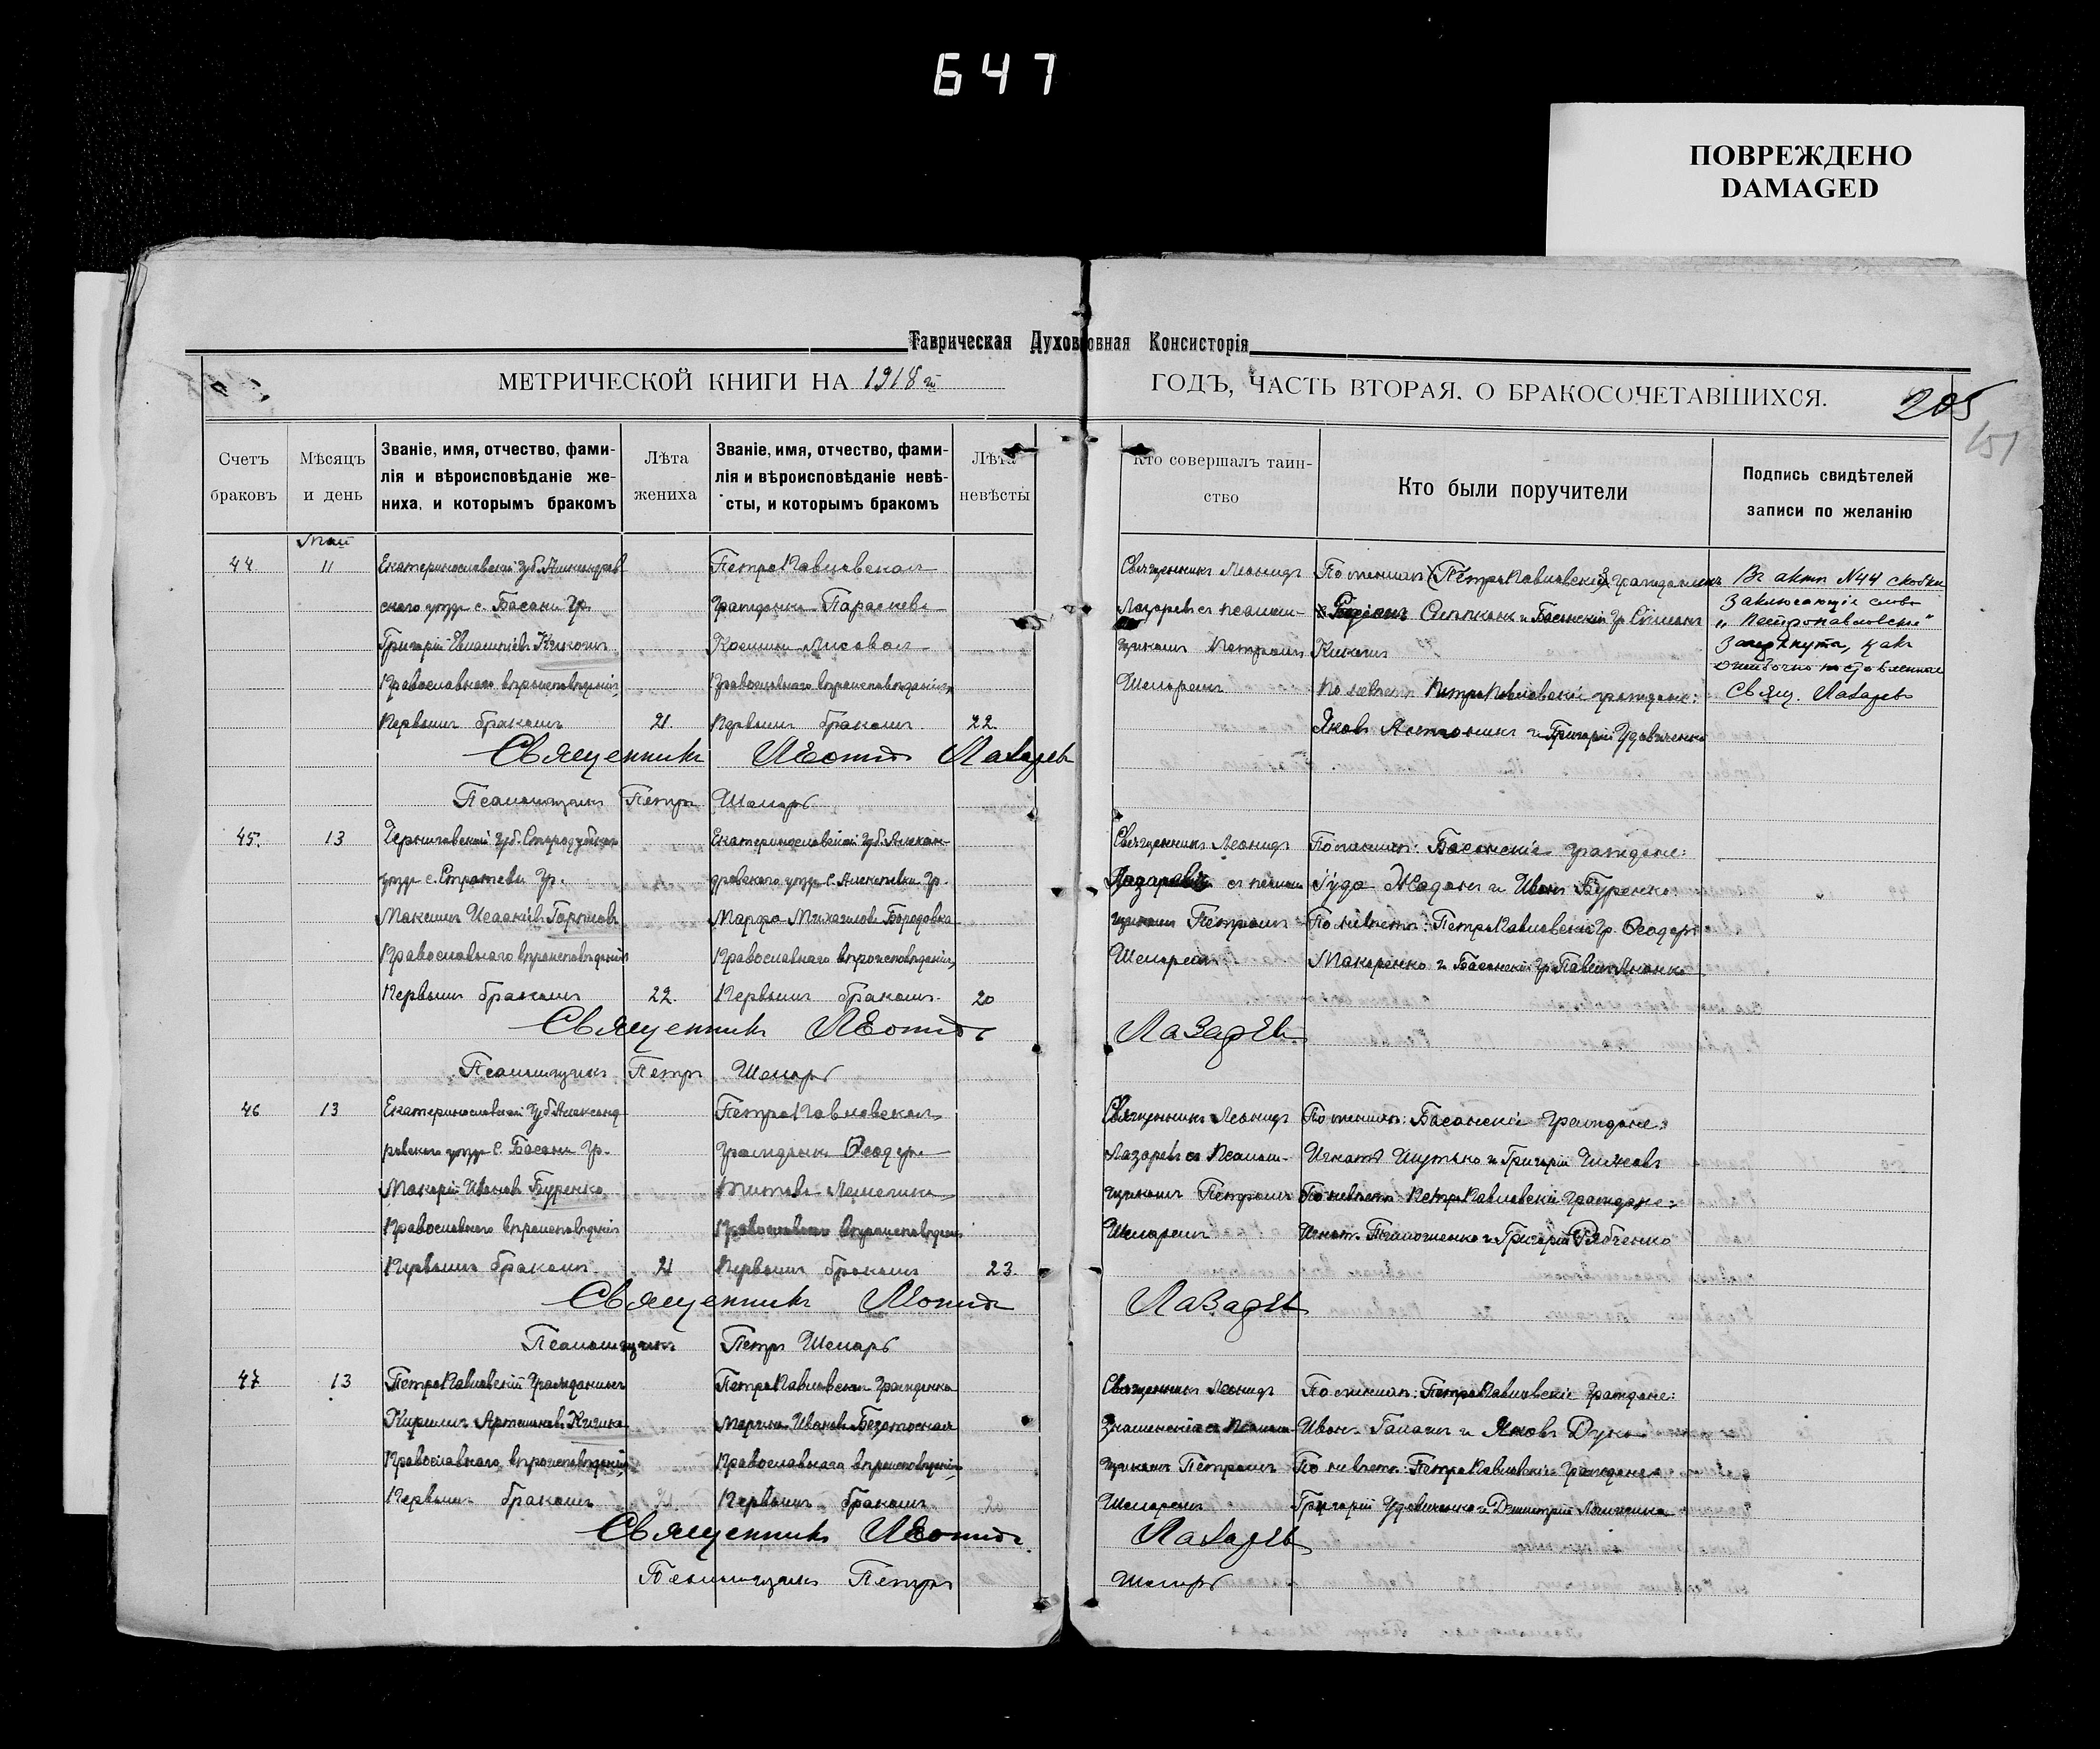 647
ПОВРЕЖДЕНО
DAMAGED
Таврическая Духовная Консисторія
МЕТРИЧЕСКОЙ КНИГИ НА 1918 й
ГОДЪ, ЧАСТЬ ВТОРАЯ. О БРАКОСОЧЕТАВШИХСЯ.
205
151
Счетъ браковъ
Мѣсяцъ и день
Званіе, имя, отчество, фами-
лія и вѣроисповѣданіе же-
ниха, и которымъ бракомъ
Лѣта жениха
Званіе, имя, отчество, фами-
лія и вѣроисповѣданіе невѣ-
сты, и которымъ бракомъ
Лѣта невѣсты
Кто совершалъ таин-
ство
Кто были поручители
Подпись свидѣтелей
записи по желанію
Май
44
11
Екатеринославской Губ. Александров
скаго уѣзда с. Басани Гр.
Григорій
Православнаго вѣроисповѣданія,
Первымъ бракомъ
21.
ПетроПавловская
Гражданка Параскева
Лисовая
Православнаго вѣроисповѣданія,
Первымъ бракомъ
22
Священникъ Леонидъ
Лазаревъ с псалом-
щикомъ Петромъ
Шемаремъ
По женихѣ (ПетроПавловскій) гражданинъ
и Басанскій Гр. Симеонъ
По невѣстѣ ПетроПавловскіе граждане:
Яковъ и Григорій Удовиченко
Въ актѣ №44 скобки
заключающія слово
„Петропавловскіе"
зачеркнуты, какъ
ошибочно поставленныя
Свящ. Лазаревъ
Священникъ Леонидъ Лазаревъ
Псаломщикъ Петръ Шемаръ
45.
13
Черниговской Губ. Стародубскаго
уѣзда с. Гр.
Максимъ
Православнаго вѣроисповѣданія
Первымъ бракомъ
22.
Екатеринославской Губ. Алексан-
дровскаго уѣзда с. Гр.
Марфа Михаилова Бородовка
Православнаго вѣроисповѣданія,
Первымъ бракомъ.
20
Священникъ Леонидъ
Лазаревъ съ псалом
щикомъ Петромъ
Шемаремъ
По женихѣ: Басанскіе граждане:
Іуда Жаданъ и Иванъ Буренко
По невѣстѣ: ПетроПавловскій Гр. Ѳеодоръ
Макаренко и Басанскій Гр. Павелъ
Священникъ Леонидъ
Лазаревъ
Псаломщикъ Петръ Шемаръ
46
13
Екатеринославской Губ. Александ
ровскаго уѣзда с. Басани Гр.
Макарій Ивановъ Буренко
Православнаго вѣроисповѣданія
Первымъ бракомъ.
21
ПетроПавловская
Гражданка Ѳеодора
Титова
Православнаго вѣроисповѣданія
Первымъ бракомъ
23.
Священникъ Леонидъ
Лазаревъ съ Псалом-
щикомъ Петромъ
Шемаремъ
По женихѣ: Басанскіе Граждане:
Игнатъ Шутько и Григорій Чижовъ
По невѣстѣ ПетроПавловскіе Граждане:
Игнатъ Тимошенко и Григорій Рябченко
Священникъ Леонидъ
Лазаревъ
Псаломщикъ
Петръ Шемаръ
47
13
ПетроПавловскій Гражданинъ
Кириллъ Артемоновъ
Православнаго вѣроисповѣданія,
Первымъ бракомъ
ПетроПавловская Гражданка
Марина Иванова
Православнаго вѣроисповѣданія,
Первымъ бракомъ
Священникъ Леонидъ
Знаменскій съ Псалом
щикомъ Петромъ
Шемаремъ
По женихѣ: ПетроПавловскіе Граждане:
Иванъ и Яковъ
По невѣстѣ: ПетроПавловскіе Граждане
Григорій Удовиченко и Димитрій
Священникъ Леонидъ
Лазаревъ
Псаломщикъ Петръ
Шемаръ